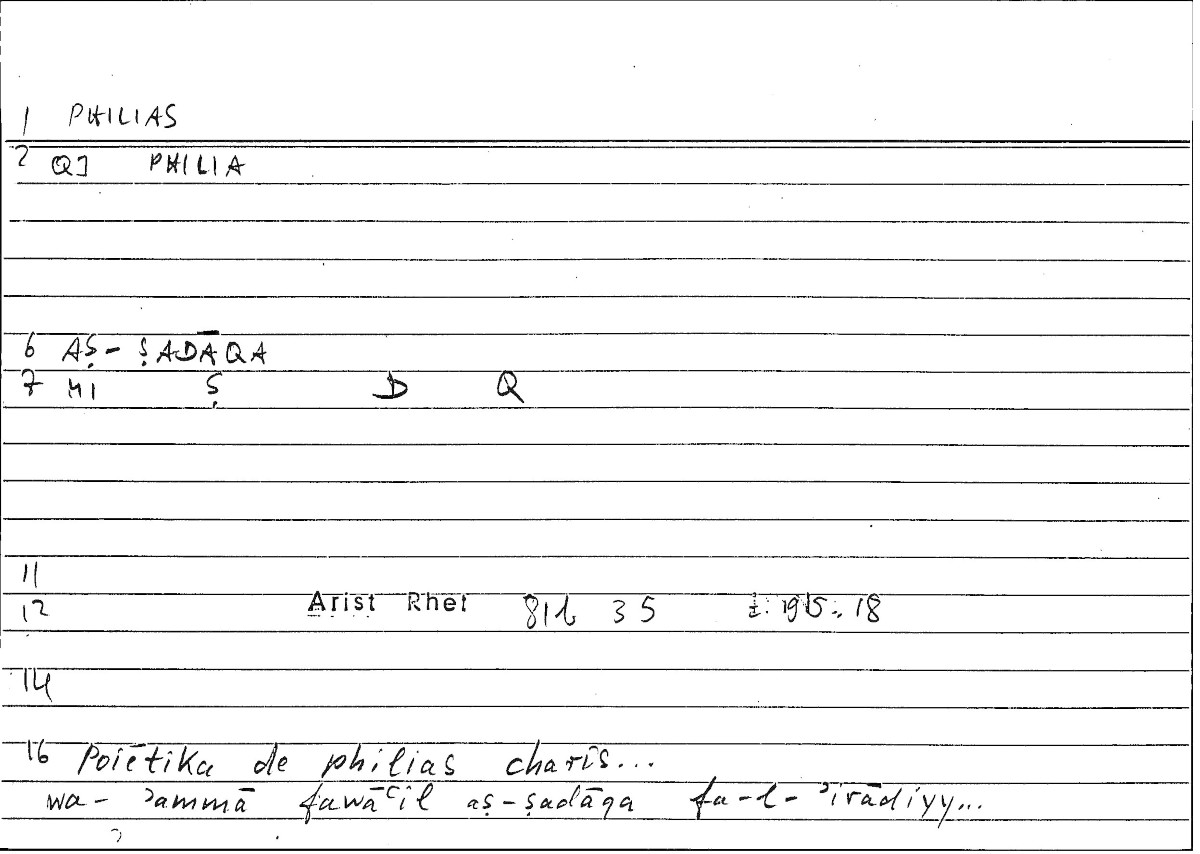 1 PHILIAS
2 QI PHILIA
6 AṢ-ṢADĀQA
7 MI Ṣ D Q
11
12 Arist Rhet 81b 35 195. 18
14
16 Poiētika de philias charis...
wa- ʾammā fawāʿil aṣ-ṣadāqa fa-l-ʾirādiyy...